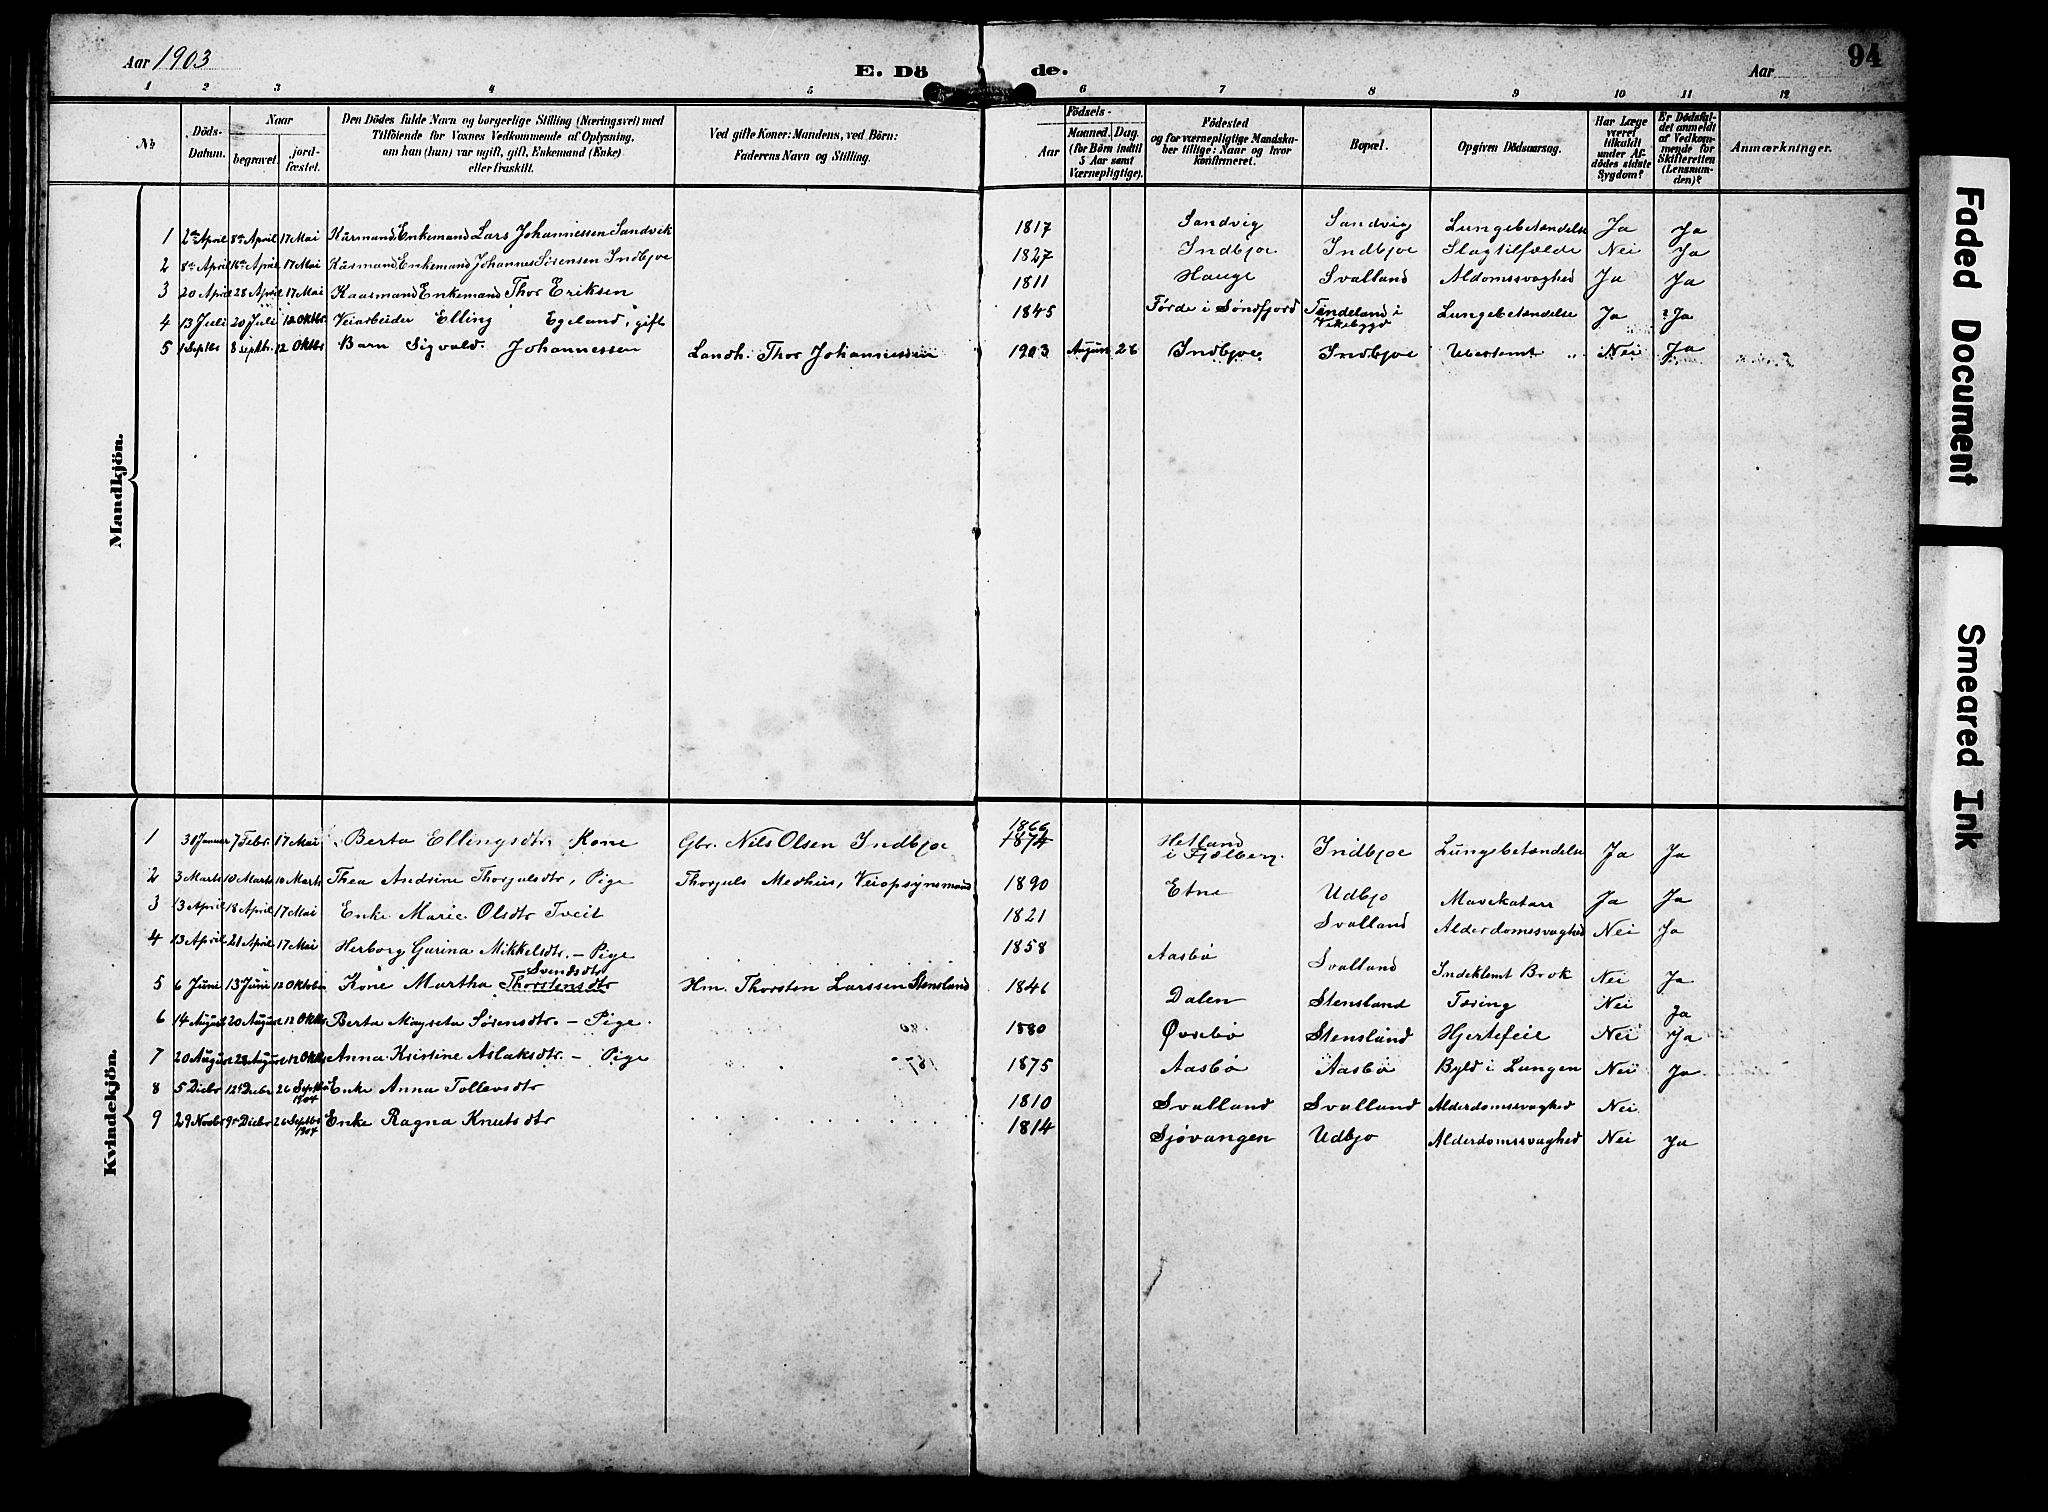 Aar 1903
E. Döde.
Aar
94
1 2 3 4 5 6 7 8 9 10 11 12
No
Döds-Datum.
Naar
begravet.
jordfæstet.
Den Dödes fulde Navn og borgerlige Stilling (Næringsvei) med Tilföiende for Voxnes Vedkommende af Oplysning, om han (hun) var ugift, gift, Enkemand (Enke) eller fraskilt.
Ved gifte Koner: Mandens, ved Börn: Faderens Navn og Stilling.
Födsels-
Aar
Maaned. Dag.
(for Börn indtil 5 Aar samt Værnepligtige).
Födested og for værnepligtige Mandskaber tillige: Naar og hvor konfirmeret.
Bopæl.
Opgiven Dödsaarsag.
Har Læge været tilkaldt under Afdödes sidste Sygdom?
Er Dödsfaldet anmeldt af Vedkommende for Skifteretten (Lensmanden)?
Anmærkninger.
Mandkjön.
1 2den April 8de April 17 Mai Kårmand, Enkemand Lars Johannessen Sandvik 1817 Sandvig Sandvig Lungebetændelse Ja Ja
2 8de April 16de April 17 Mai Kårmand Enkemand Johannes Sørensen Indbjoe 1827 Indbjoe Indbjoe Slagtilfælde Nei Ja
3 20 April 28 April 17 Mai Kaarmand Enkemand Thor Eriksen 1811 Hauge Svalland Aldomssvaghed Ja Ja
4 13 Juli 20 Juli 12 Oktbr. Veiarbeider Elling Egeland, gift 1845 Førde i Søndfjord Tindeland i Vikebygd Lungebetændelse Ja ? Ja
5 1 Septbr 8 septbr. 12 Oktbr Barn Sigvald Johannessen Landh. Thor Johannessen 1903 August 26 Indbjoe Indbjoe Ubestemt " Nei Ja
Kvindekjön.
1 30 Januar 7 Febr. 17 Mai Berta Ellingsdtr, Kone Gbr. Nils Olsen Indbjoe 1866 1874 Hetland i Fjelberg. Indbjoe Lungebetændelse Ja Ja
2 3 Marts 10 Marts 10 Marts Thea Andrine Thorjulsdtr, Pige Thorjuls Medhus, Veiopsynsmand 1890 Etne Udbjo Mavekatarr Ja Ja
3 13 April 18 April 17 Mai Enke Marie Olsdtr Tveit 1821 Svalland Alderdomssvaghed Nei Ja
4 13 April 21 April 17 Mai Herborg Gurina Mikkelsdtr. – Pige 1858 Aasbø Svalland Indeklemt Brok Nei Ja
Svendsdtr
5 6 Juni 13 Juni 12 Oktober Kone Martha Thorstensdtr Hm. Thorsten Larssen Stensland 1846 Dalen Stensland Tæring Nei Ja
6 14 August 20 August 12 Oktbr Berta Mayreta Sørensdtr. – Pige. 1880 Øvrebø Stensland Hjertefeil Nei Ja
7 20 August 28 August 12 Oktbr Anna Kristine Aslaksdtr. – Pige 1875 Aasbø Aasbø Byld i Lungen Nei Ja
8 5 Dicbr 12 Dicbr 26 Septbr 1904 Enke Anna Tollevsdtr 1810 Svalland Svalland Alderdomssvaghed Nei
9 29 Novbr 9 Dicbr 26 Septbr 1904 Enke Ragna Knutsdtr 1814 Sjøvangen Udbjo Alderdomssvaghed Nei Ja
Faded Document
Smeared Ink